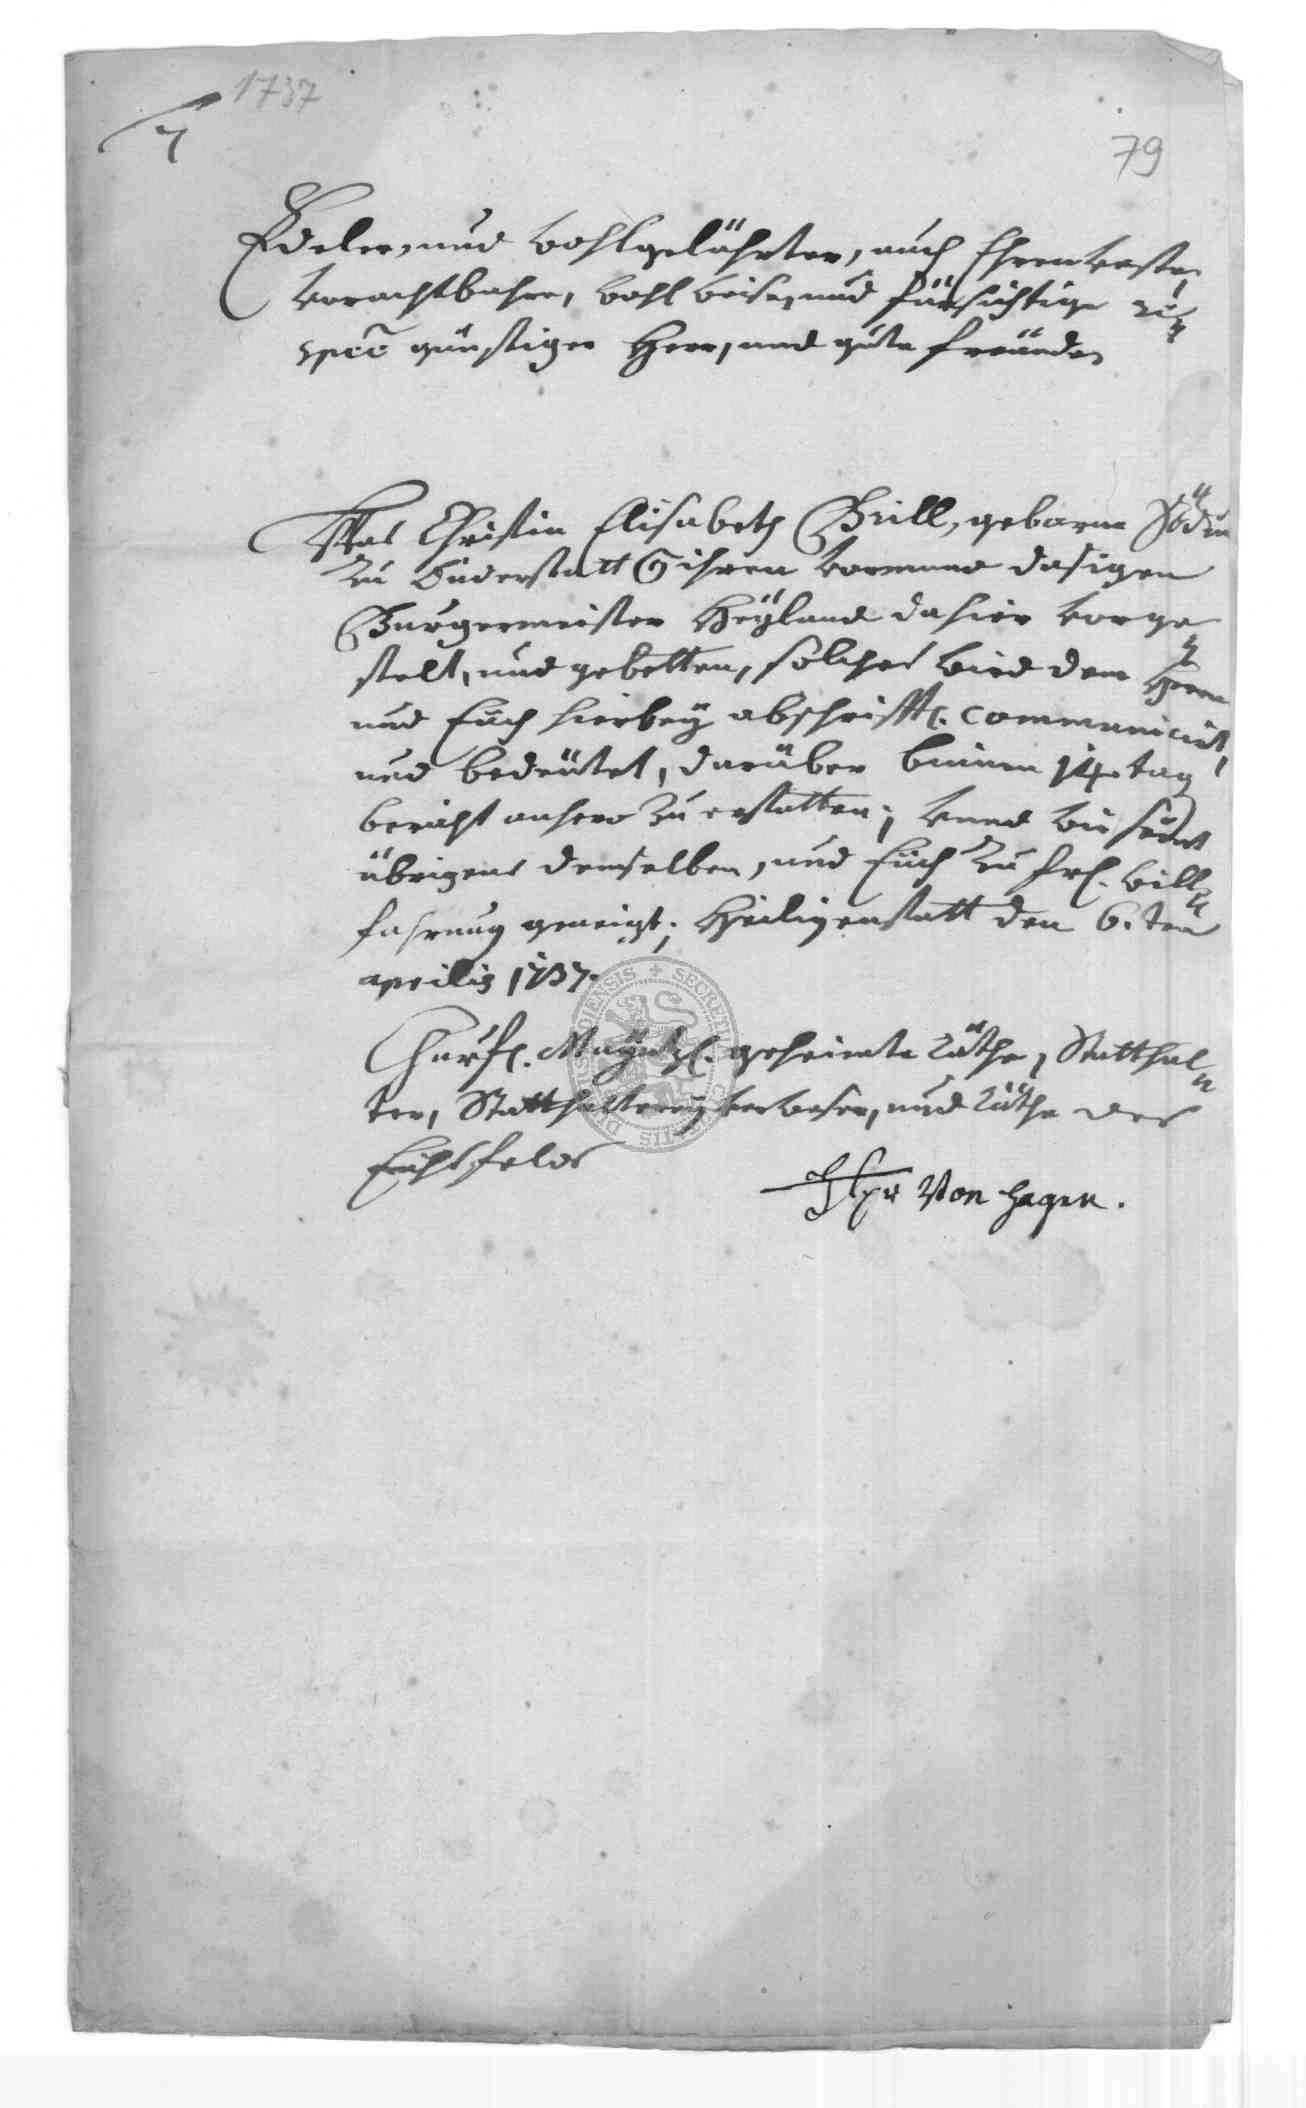 1737
79
Edeler, und wohlgelährter, auch Ehrenveste,
vorachtbahre, wohl weise, und fürsichtige re=
spec̄ günstiger Herr, und gute freünde
Was Christin Elisabeth Brill, gebarne Jödin
zu Duderstatt C. ihren vormund dasigen
Burgermeister Heÿland dahier vorge=
stelt, und gebetten, solches wird dem Herrn
und Euch hierbeÿ abschrifftl. communicirt,
und bedeütet, darüber binnen 14. tag
bericht anhero zu erstatten; Unnd wir seind
übrigens demselben, und Euch zu frl. will=
fahrung geneigt; Heiligenstatt den 6. ten
aprilis 1737.
Churfl. Maÿntzl. geheimte räthe, Statthal=
ter, Statthaltereÿ verweser, und räthe des
Eichsfelds
von Hagen.
DUDERSTADIENSIS + SECRETUM CIVITATIS